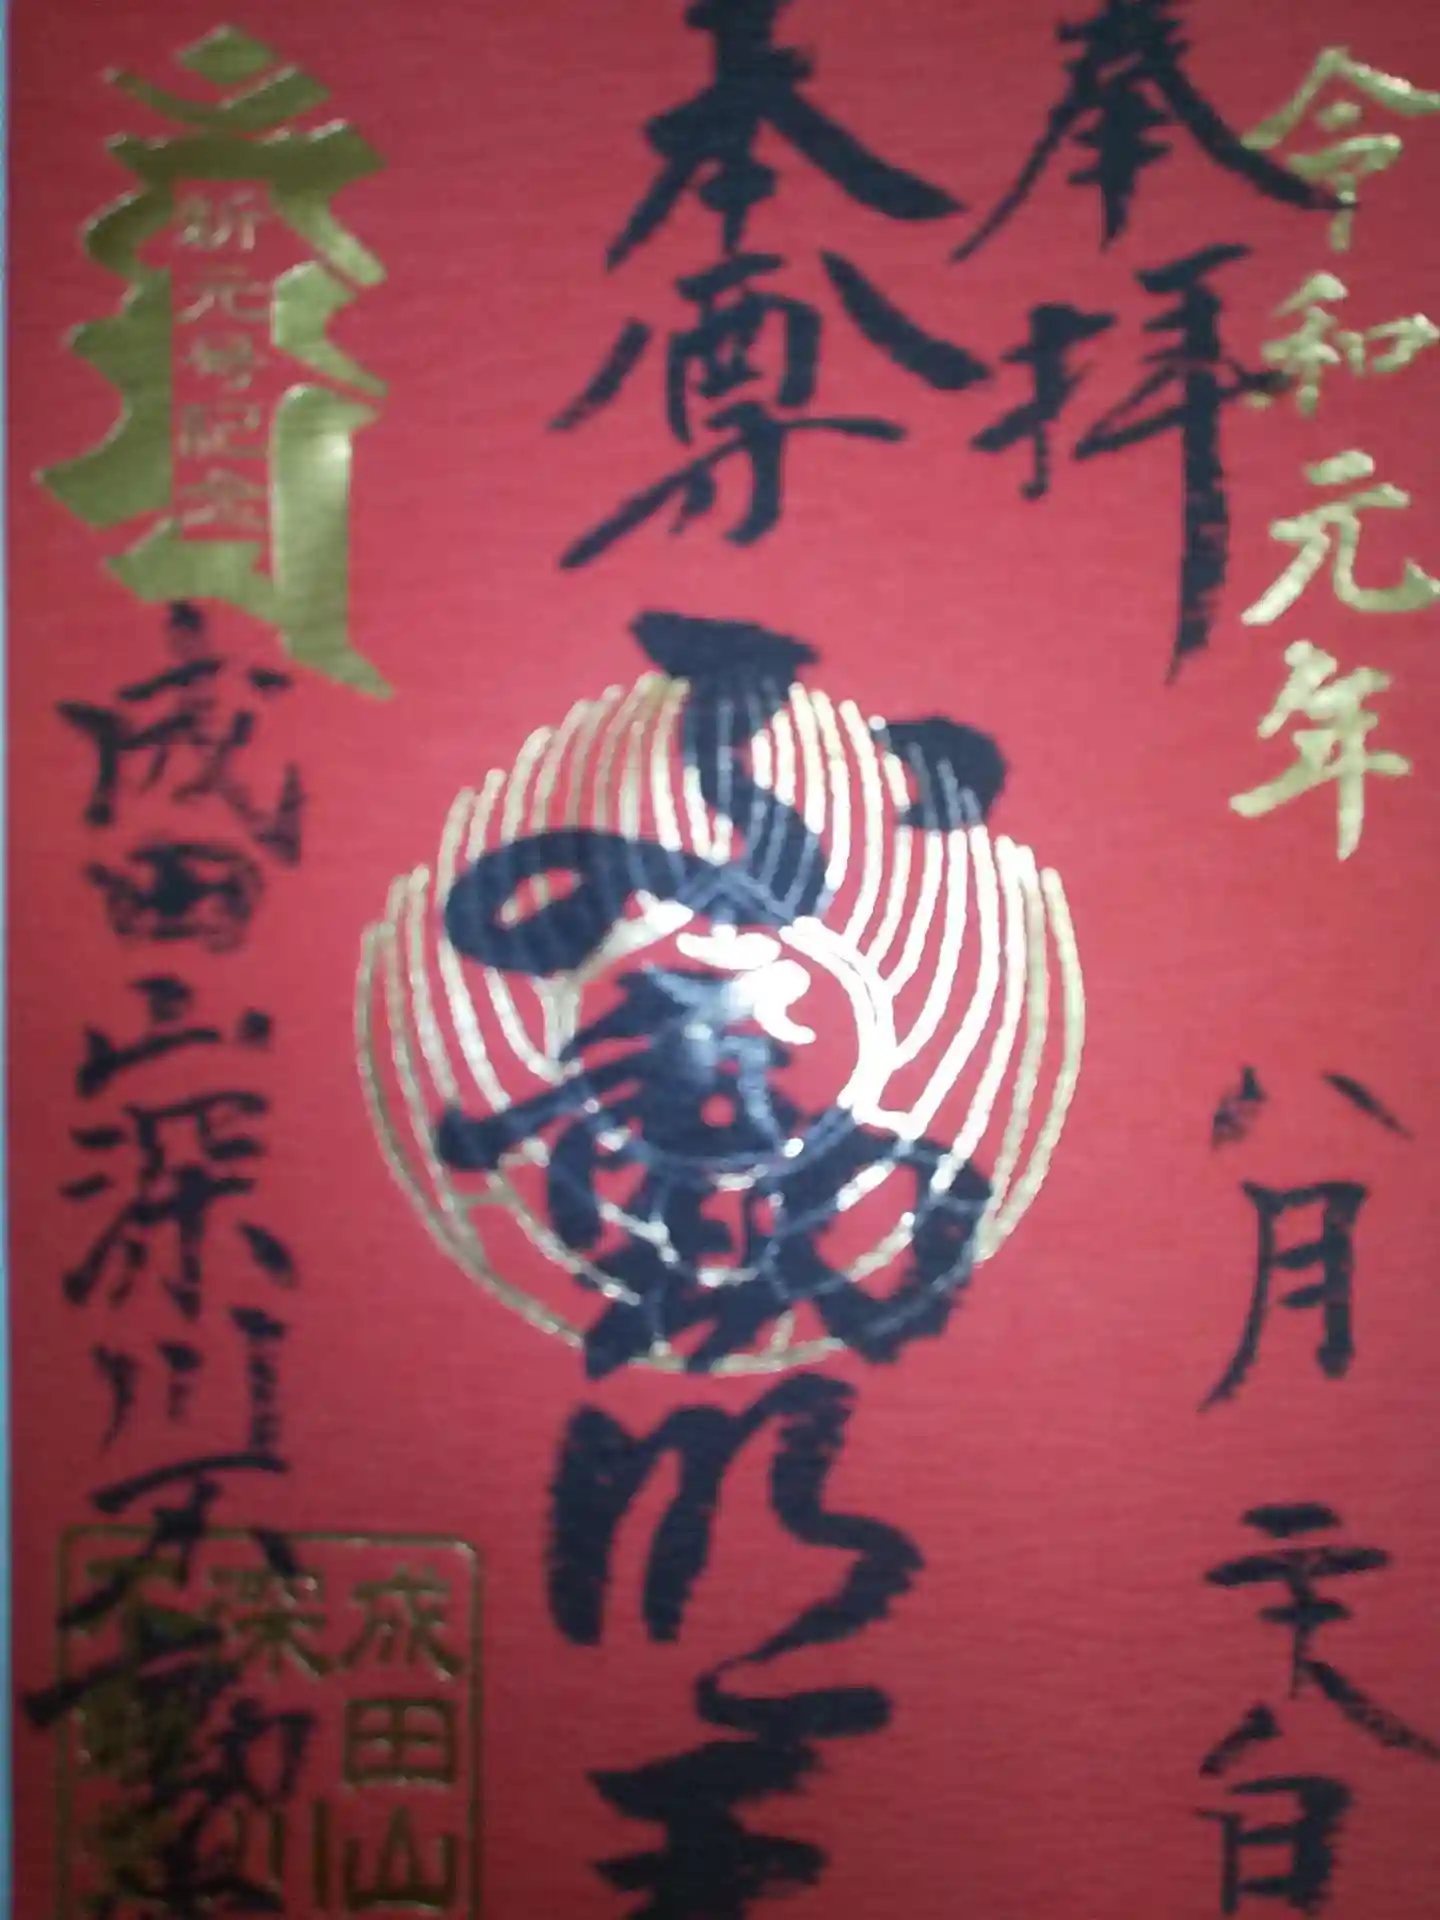 令和元年
八月二十八日
奉拝
本尊
不動明王
新元号記念
成田山深川不動堂
成田山
深川
不